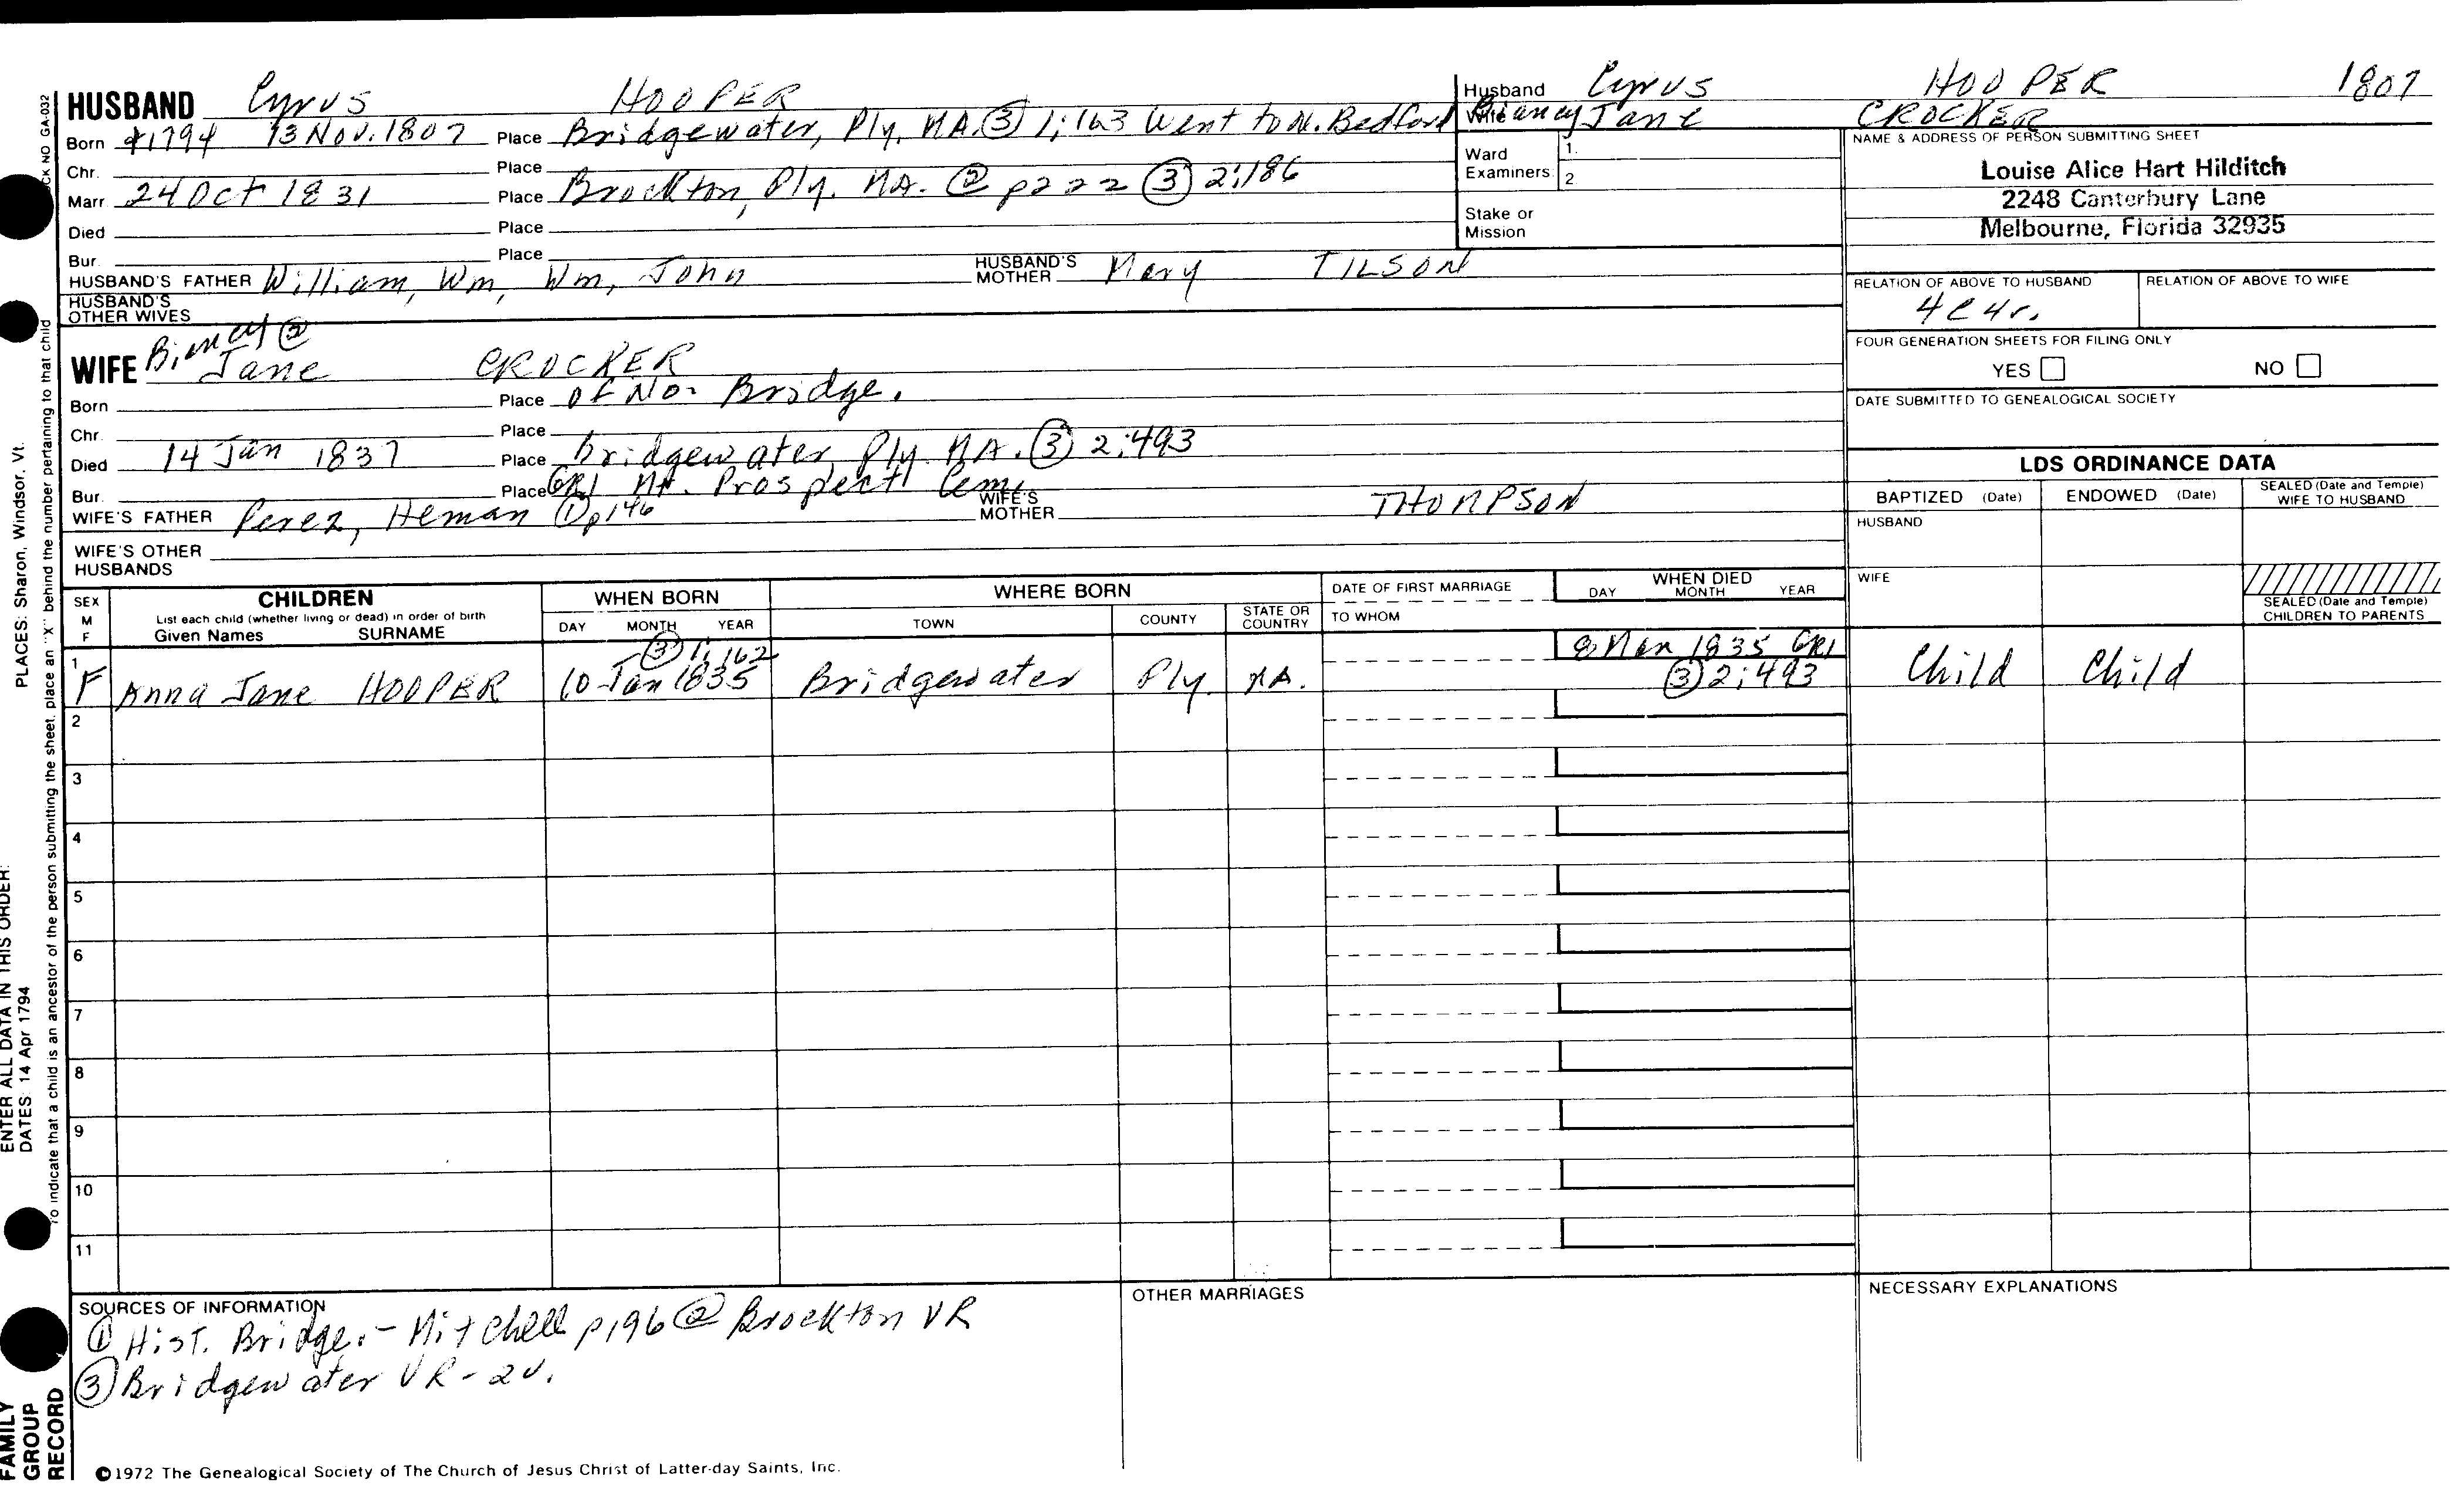 HUSBAND Cyrus HOOPER
Born 13 Nov. 1807 Place Bridgewater, Ply, MA. ③ 1;163 Went to N. Bedford
Chr. Place
Marr. 24 Oct 1831 Place Brockton, Ply. MA. ② p222 ③ 2;186
Died Place
Bur. Place
HUSBAND'S FATHER William, Wm, Wm, John HUSBAND'S MOTHER Mary TILSON
HUSBAND'S OTHER WIVES
WIFE ② Jane CROCKER
Born Place of No. Bridge.
Chr. Place
Died 14 Jan 1837 Place Bridgewater Ply. MA. ③ 2;493
Bur. Place GR1 Mt. Prospect Cem.
WIFE'S FATHER Perez, Heman ① WIFE'S MOTHER THOMPSON
WIFE'S OTHER HUSBANDS
Husband Cyrus HOOPER 1807
Wife Jane CROCKER
Ward Examiners: 1.
2.
Stake or Mission
NAME & ADDRESS OF PERSON SUBMITTING SHEET
Louise Alice Hart Hilditch
2248 Canterbury Lane
Melbourne, Florida 32935
RELATION OF ABOVE TO HUSBAND RELATION OF ABOVE TO WIFE
4C4r.
FOUR GENERATION SHEETS FOR FILING ONLY
YES NO
DATE SUBMITTED TO GENEALOGICAL SOCIETY
LDS ORDINANCE DATA
BAPTIZED (Date) ENDOWED (Date) SEALED (Date and Temple) WIFE TO HUSBAND
HUSBAND
WIFE
SEALED (Date and Temple) CHILDREN TO PARENTS
SEX M F
CHILDREN
List each child (whether living or dead) in order of birth
Given Names SURNAME
WHEN BORN
DAY MONTH YEAR
WHERE BORN
TOWN COUNTY STATE OR COUNTRY
DATE OF FIRST MARRIAGE
TO WHOM
WHEN DIED
DAY MONTH YEAR
③ 1;162 8 Mar 1835 GR1
1 F Anna Jane HOOPER 10 Jan 1835 Bridgewater Ply. MA. ③ 2;493 Child Child
2
3
4
5
6
7
8
9
10
11
SOURCES OF INFORMATION
① Hist. Bridge.- Mitchell p196 ② Brockton VR
③ Bridgewater VR - 2v.
OTHER MARRIAGES
NECESSARY EXPLANATIONS
©1972 The Genealogical Society of The Church of Jesus Christ of Latter-day Saints, Inc.
FAMILY GROUP RECORD
ENTER ALL DATA IN THIS ORDER:
DATES: 14 Apr 1794
PLACES: Sharon, Windsor, Vt.
To indicate that a child is an ancestor of the person submitting the sheet, place an "X" behind the number pertaining to that child
NO GA-032